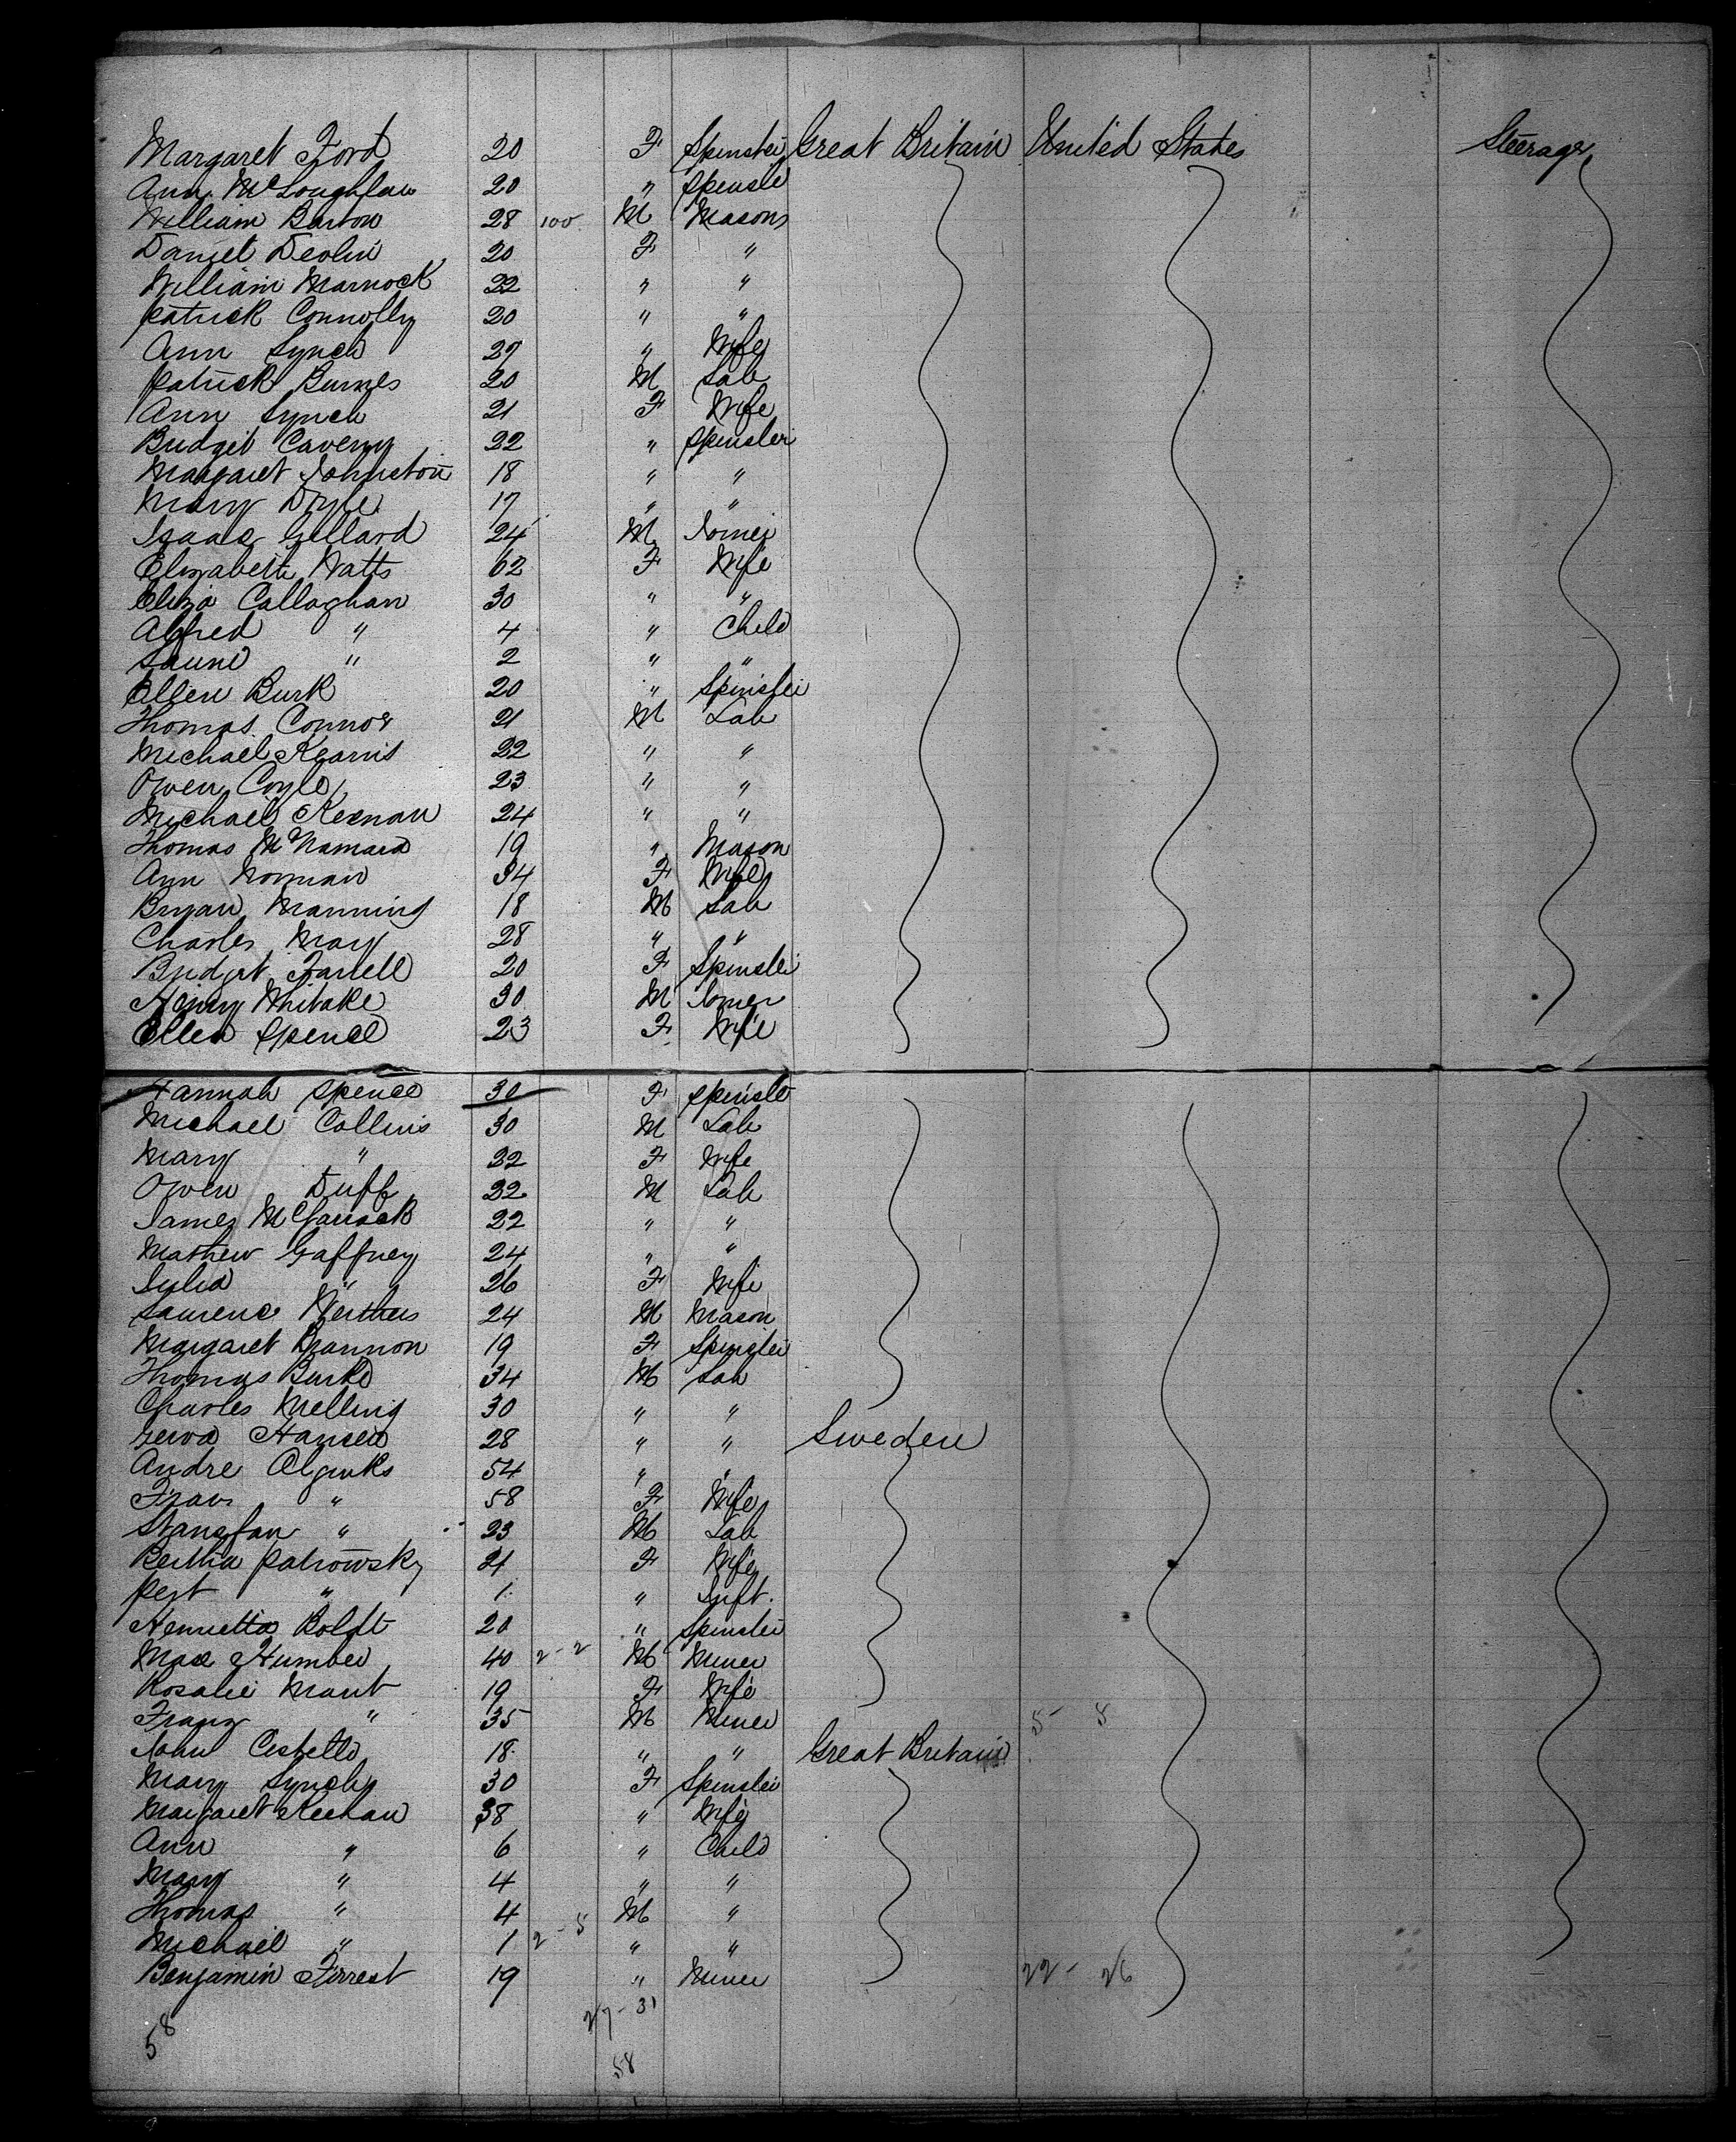 Margaret Ford 20 F Spinster Great Britain United States Steerage
Ann McLoughlan 20 " Spinste
William Barton 28 100 M Masons
Daniel Devlin 20 F "
William Marnock 22 " "
Patrick Connolly 20 " "
Ann Lynch 27 " Wife
Patrick Burnes 20 M Lab
Ann Lynch 21 F Wife
Bridget Caveny 22 " Spinster
Margaret Johnston 18 " "
Mary Doyle 17 " "
Isaac Gellard 24 M Joiner
Elizabeth Watts 62 F Wife
Eliza Callaghan 30 " "
Alfred " 4 " Child
" 2 " "
Ellen Burk 20 " Spinster
Thomas Connor 21 M Lab
Michael Kearns 22 " "
Owen Coyle 23 " "
Michael Keenan 24 " "
Thomas McNamara 19 " Mason
Ann Norman 34 F Wife
Bryan Manning 18 M Lab
Charles May 28 " "
Bridget Farrell 20 F Spinster
Henry Whitake 30 M Joiner
Ellen Spence 23 F Wife
Hannah Spence 30 F Spinste
Michael Collins 30 M Lab
Mary " 22 F Wife
Owen Duff 22 M Lab
James 22 " "
Mathew Gaffney 24 " "
Julia " 26 F Wife
Laurence 24 M Mason
Margaret Brannon 19 F Spinster
Thomas Burke 34 M Lab
Charles Melling 30 " "
Hansen 28 " " Sweden
Andre 54 " "
" 58 F Wife
" 23 M Lab
Bertha Patrowsky 21 F Wife
" 1 " Inft.
Henrietta Boldt 20 " Spinster
Max Humber 40 2-2 M Miner
Rosalie Mant 19 F Wife
Franz " 35 M Miner 5- 8
John Costello 18 " " Great Britain
Mary Lynch 30 F Spinster
Margaret Keehan 38 " Wife
Ann " 6 " Child
Mary " 4 " "
Thomas " 4 M "
Michael " 1 2-5 " "
Benjamin Forrest 19 " Miner 22- 26
27-31
58
58